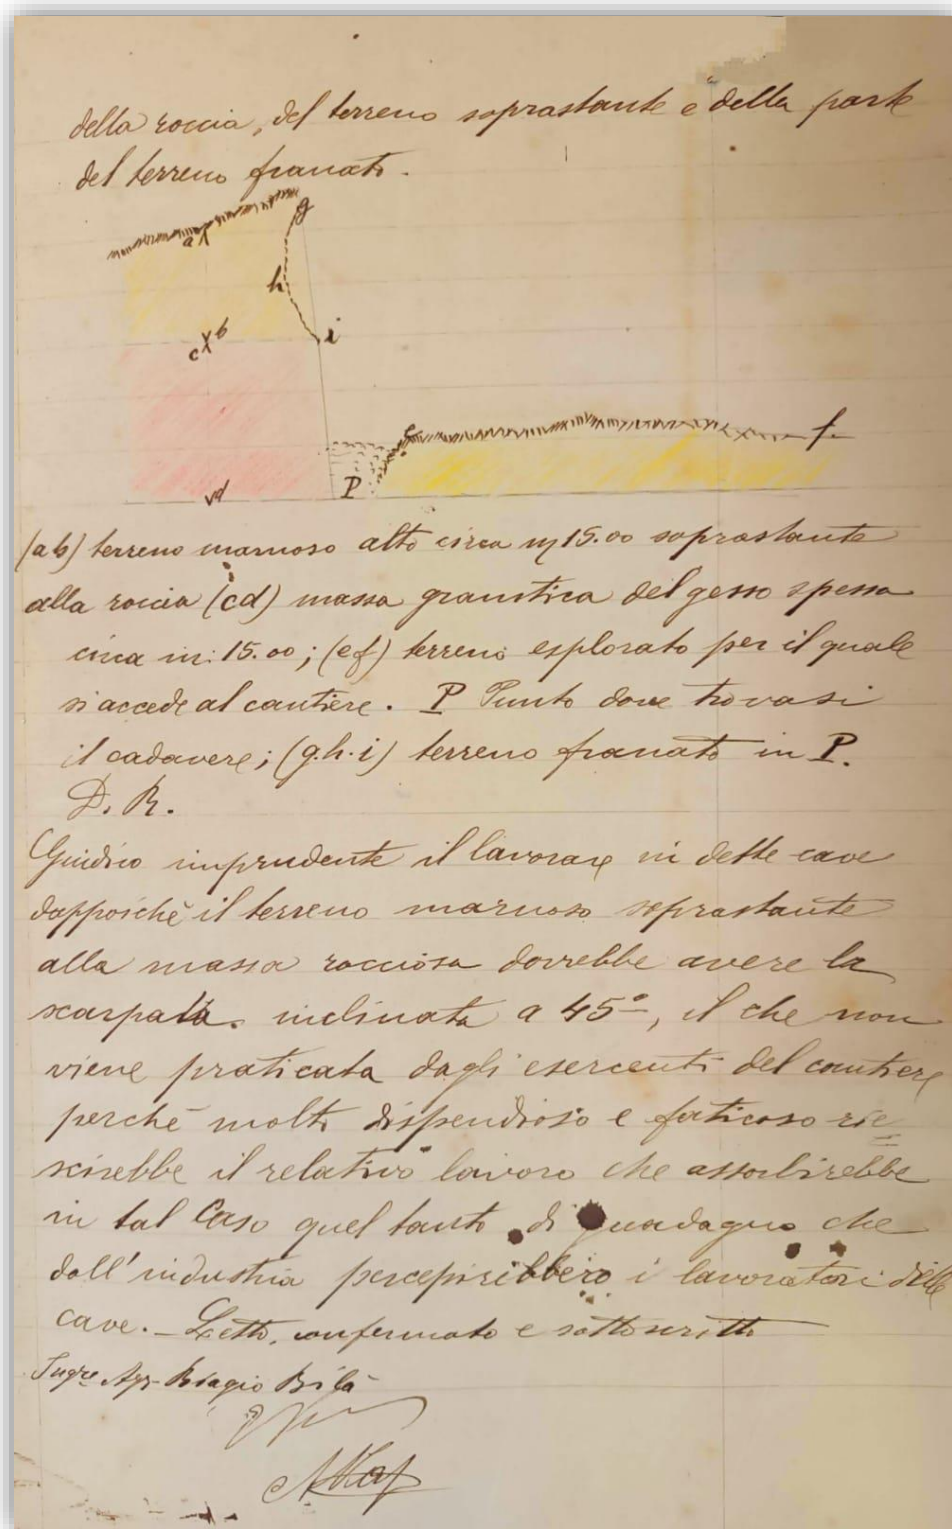 della roccia, del terreno soprastante e della parte
del terreno franato.
g
a
h
c b
i
e
f.
d
P
(ab) terreno marnoso alto circa m 15.00 soprastante
alla roccia (cd) massa granitica del gesso spessa
circa m: 15.00; (ef) terreno esplorato per il quale
si accede al cantiere. P Punto dove trovasi
il cadavere; (g.h.i) terreno franato in P.
D. R.
Giudico imprudente il lavorare in dette cave
dappoichè il terreno marnoso soprastante
alla massa rocciosa dovrebbe avere la
scarpata inclinata a 45°, il che non
viene praticata dagli esercenti del cantiere
perchè molto dispendioso e faticoso rie=
scirebbe il relativo lavoro che assorbirebbe
in tal Caso quel tanto di guadagno che
dall'industria percepirebbero i lavoratori delle
cave. - Letto, confermato e sottoscritto
Ingre Agr. Biagio Bilà